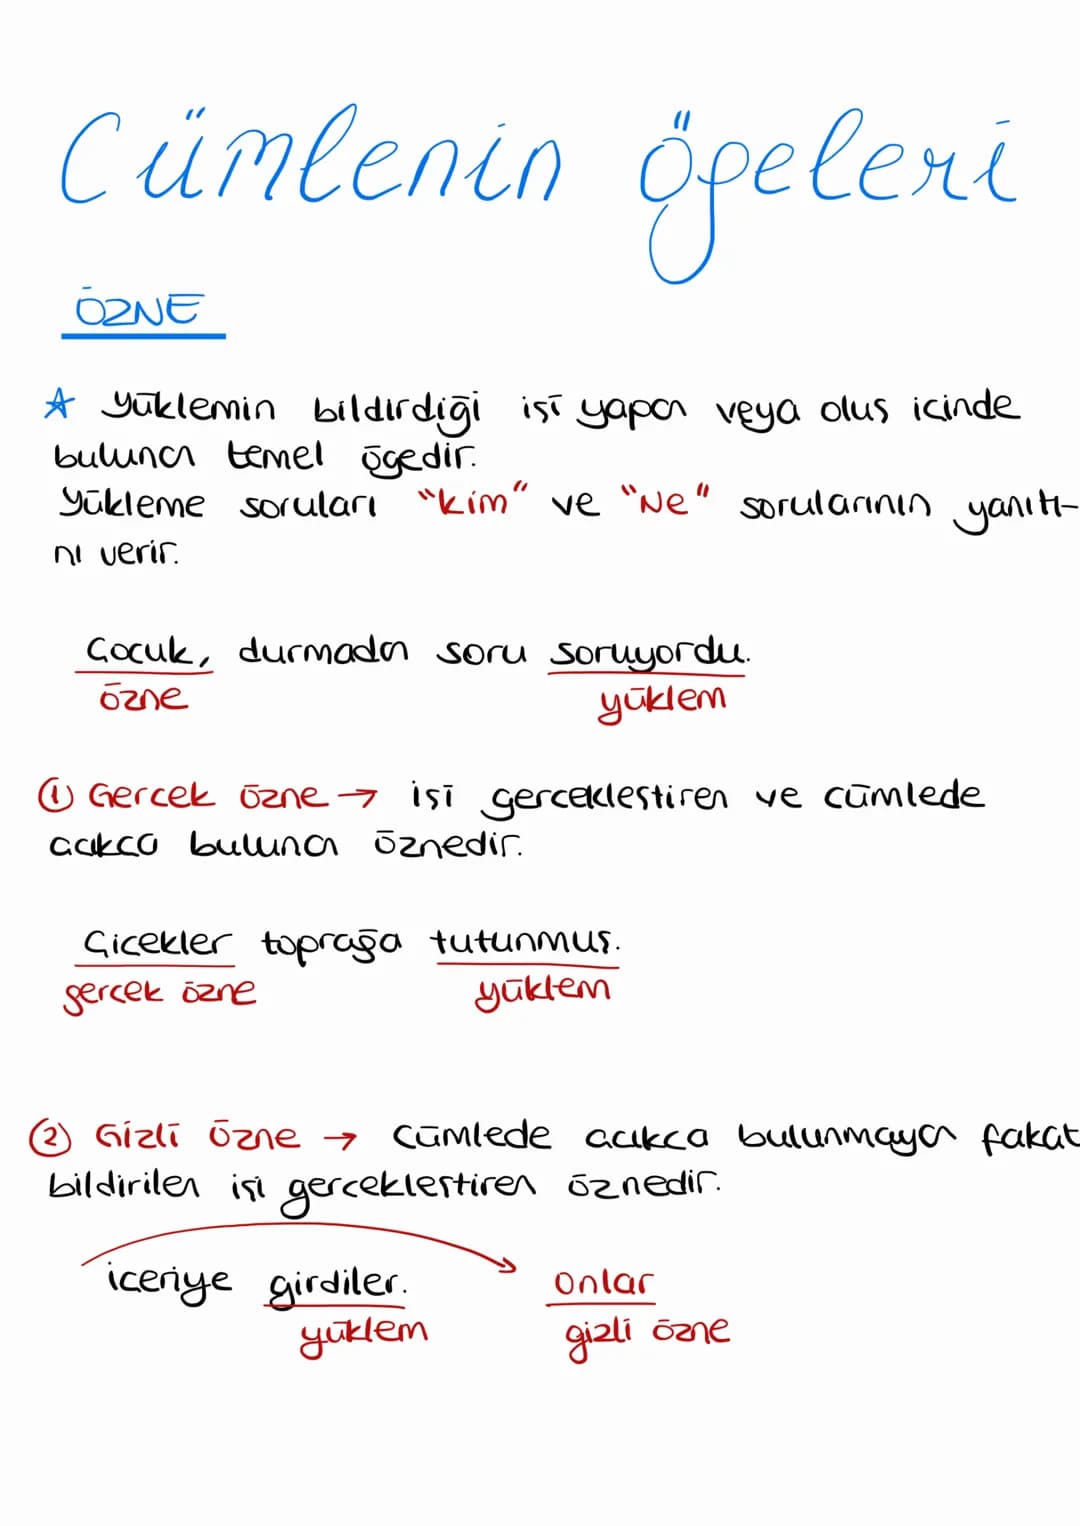 Cümlenin ögeleri
ÖZNE
☆ Yüklemin bildirdiği işi yapan veya oluş icinde
bulunan temel ögedir.
Yükleme soruları "kim" ve "Ne" sorularının yanıtı-
nı verir.
Çocuk, durmadan soru soruyordu.
özne yüklem
① Gercek özne → işi gercekleştiren ve cümlede
acıkca bulunan öznedir.
Çicekler toprağa tutunmuş.
gercek özne yüklem
② Gizli Özne → Cümlede acıkca bulunmayan fakat
bildirilen işi gercekleştiren öznedir.
iceriye girdiler. onlar
yüklem gizli özne